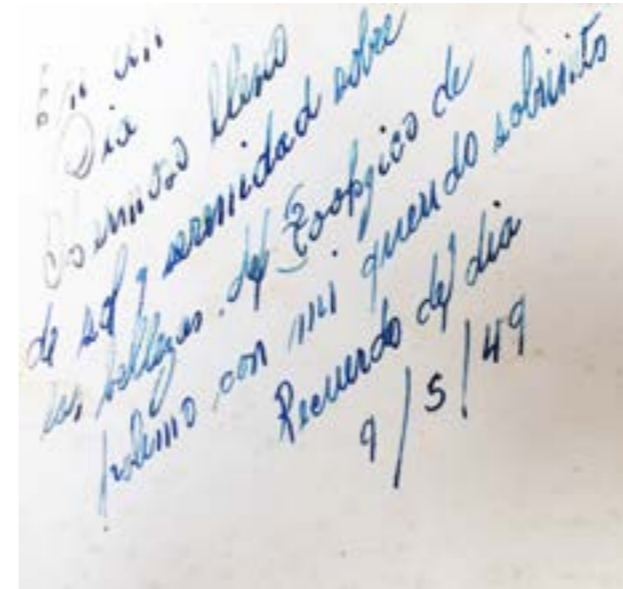 En un
Dia
hermoso lleno
de sol y serenidad sobre
las bellezas del Zoologico de
Palermo con mi querido sobrinito
Recuerdo del dia
9/5/49